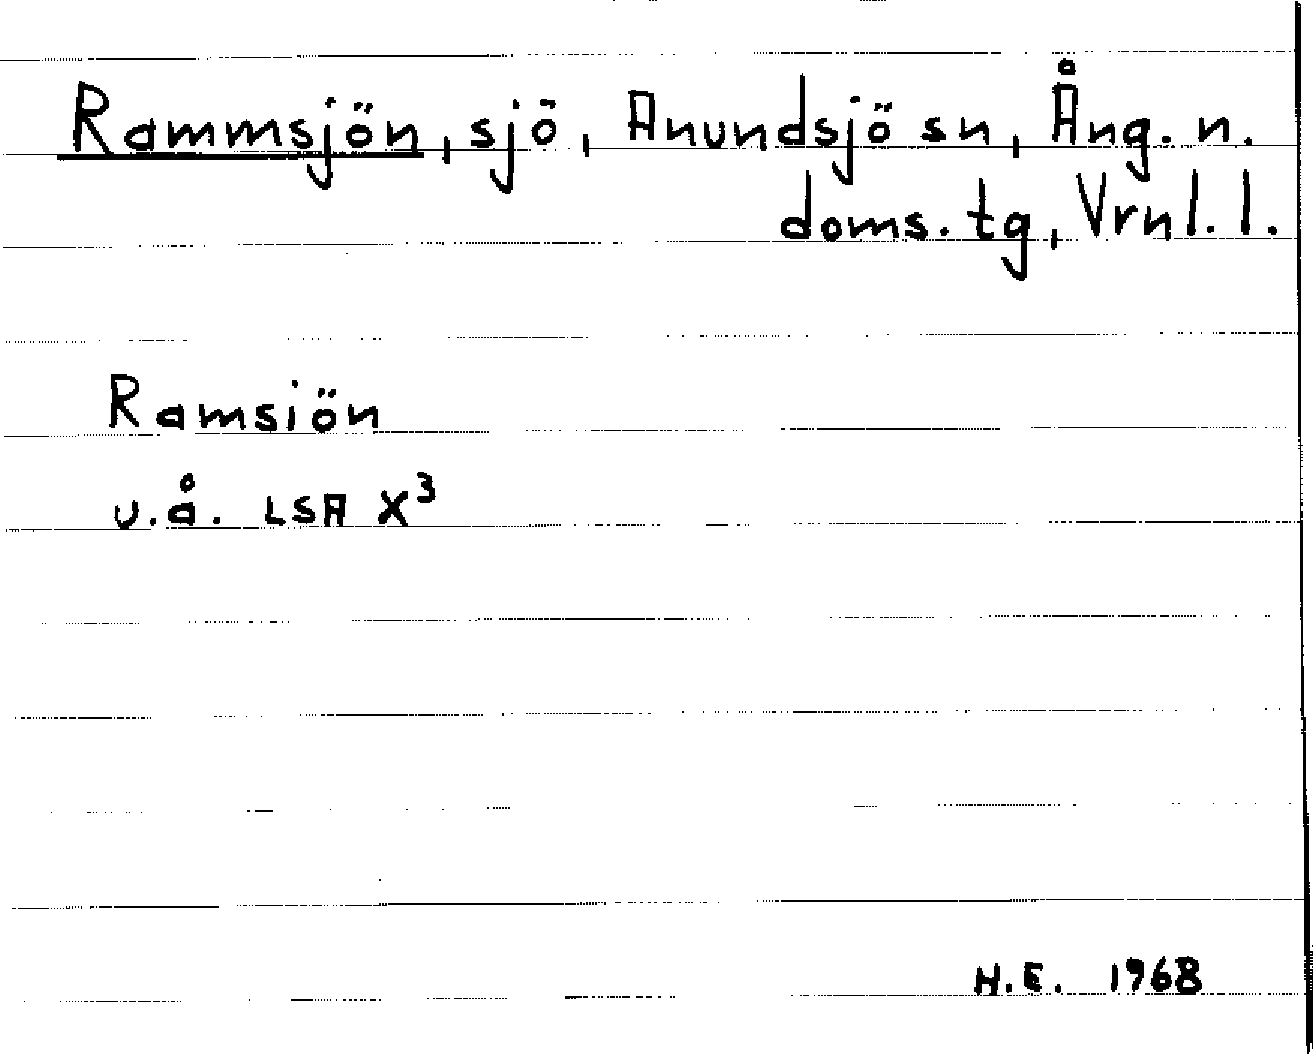 Rammsjön, sjö, Anundsjö sn, Ång. n.
doms. tg, Vrnl. l.
Ramsiön
u.å. LSA X³
H.E. 1968